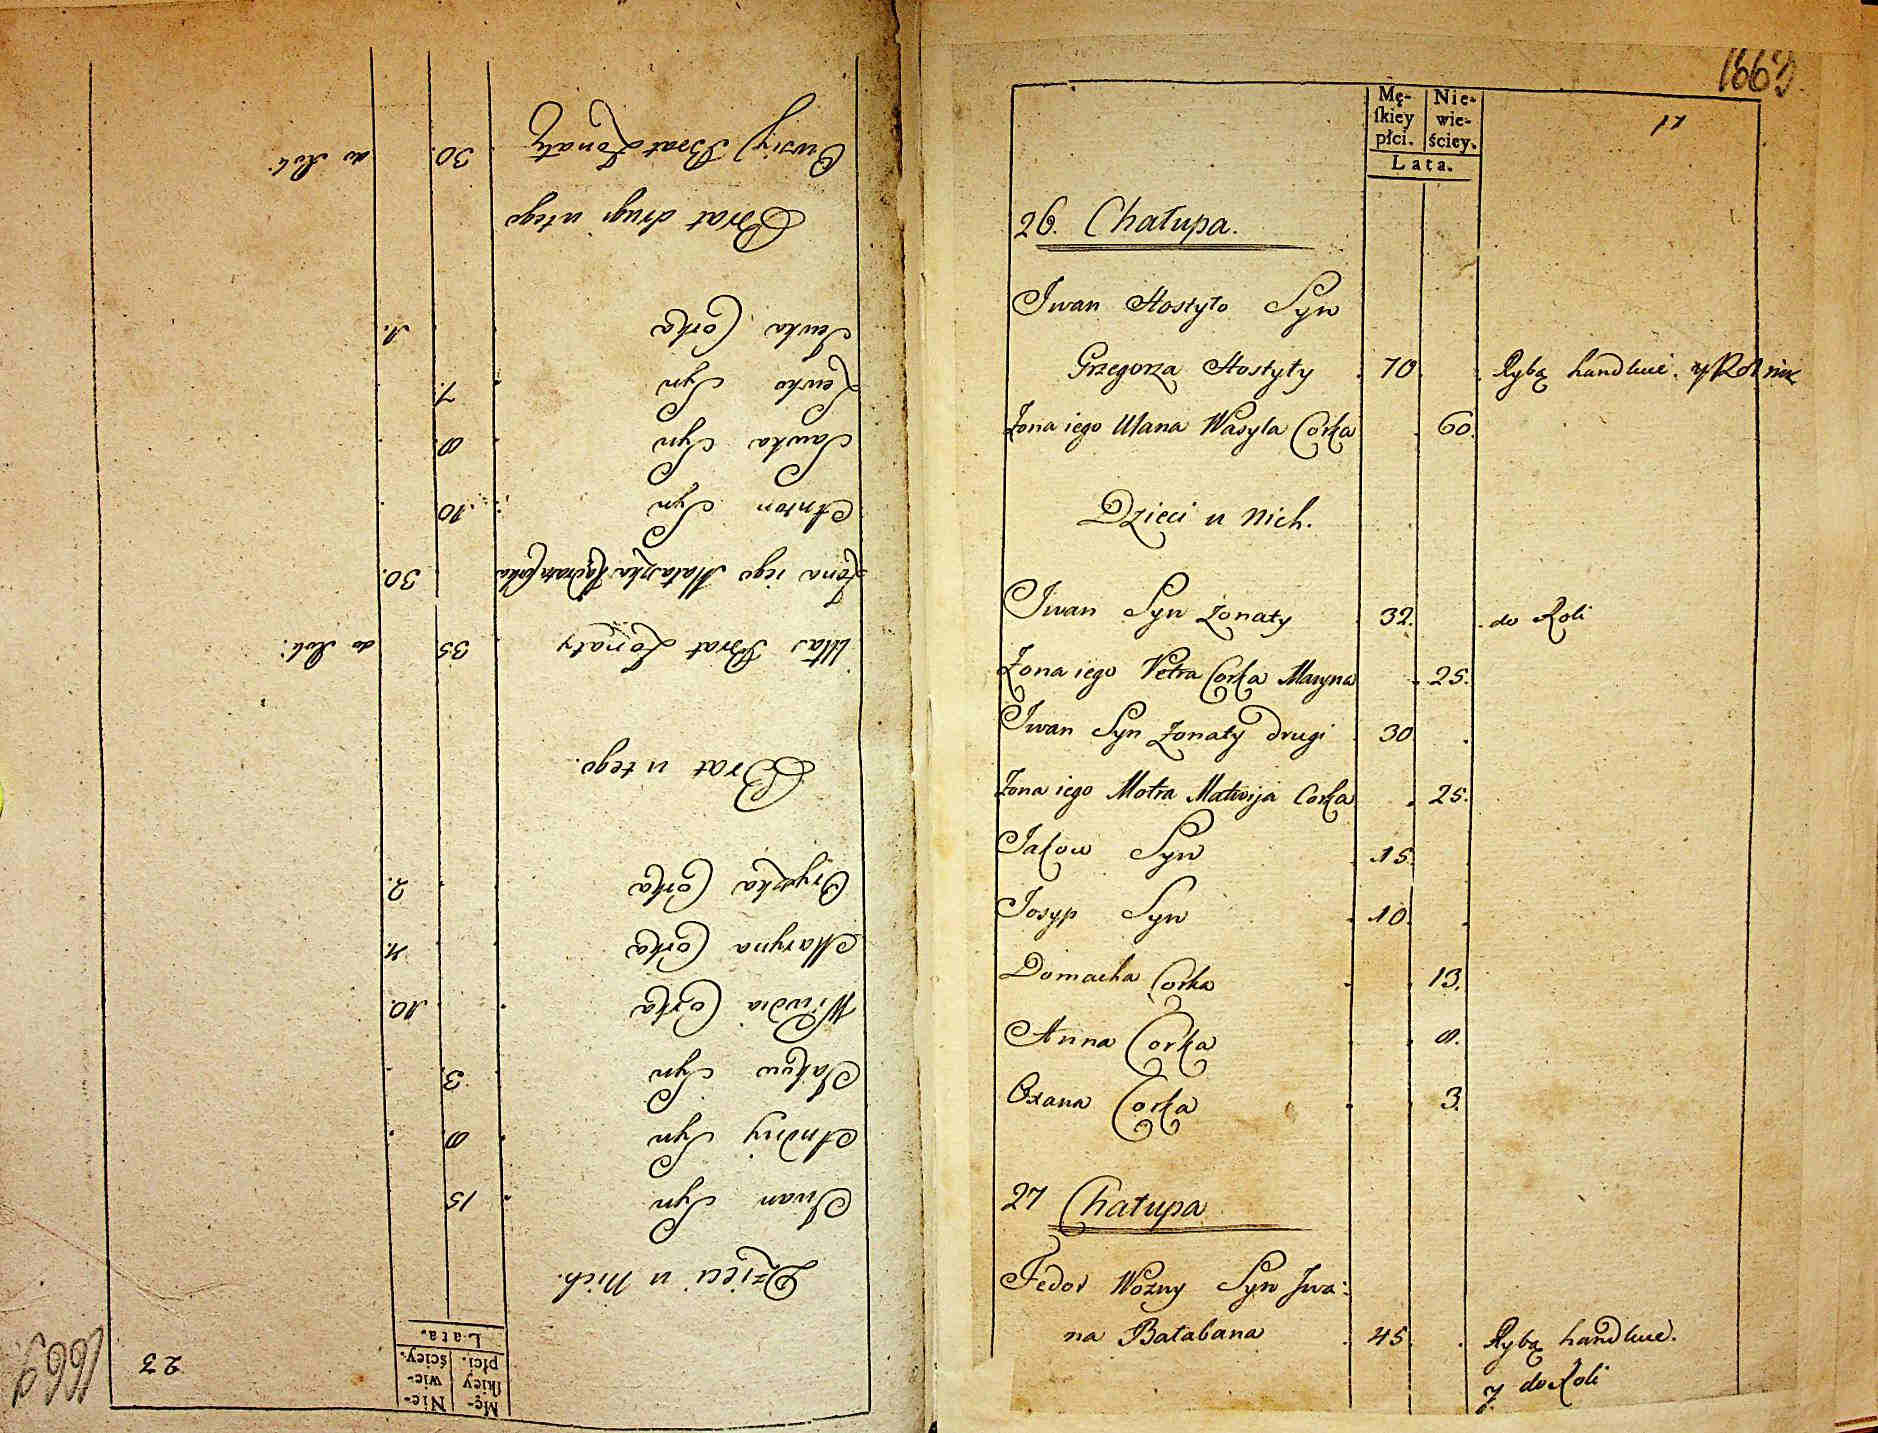 23
Mę-
ſkiey
płci.
Nie-
wie-
ściey.
Lata.
Dzieci u Nich.
Iwan Syn 15
Andruy Syn 8
Jakow Syn 3
Corka 10.
Maryna Corka 4.
Oryszka Corka 2.
Brat u tego.
Ułas Brat Zonaty 35 do Roli.
Zona iego Corka 30.
Anton Syn 10.
Sawka Syn 8
Lewko Syn 7.
Jewka Corka 1.
Brat drugi u tego
Owsiy Brat Zonaty 30 do Roli
17
Mę-
ſkiey
płci.
Nie-
wie-
ściey.
Lata.
26. Chałupa.
Iwan Hostyło Syn
Grzegorza Hostyły 70 Rybą handluie. y Rolnik
Zona iego Ulana Wasyla Corka 60.
Dzieci u Nich.
Iwan Syn Zonaty 32. do Roli
Zona iego Petra Corka Maryna 25.
Iwan Syn Zonaty drugi 30
Zona iego Motra Matwija Corka 25.
Jakow Syn 15.
Josyp Syn 10.
Domacha Corka 13.
Anna Corka 8.
Oxana Corka 3.
27 Chałupa
Fedor Wozny Syn Iwa:
na Bałabana 45. Rybą handluie.
y do Roli